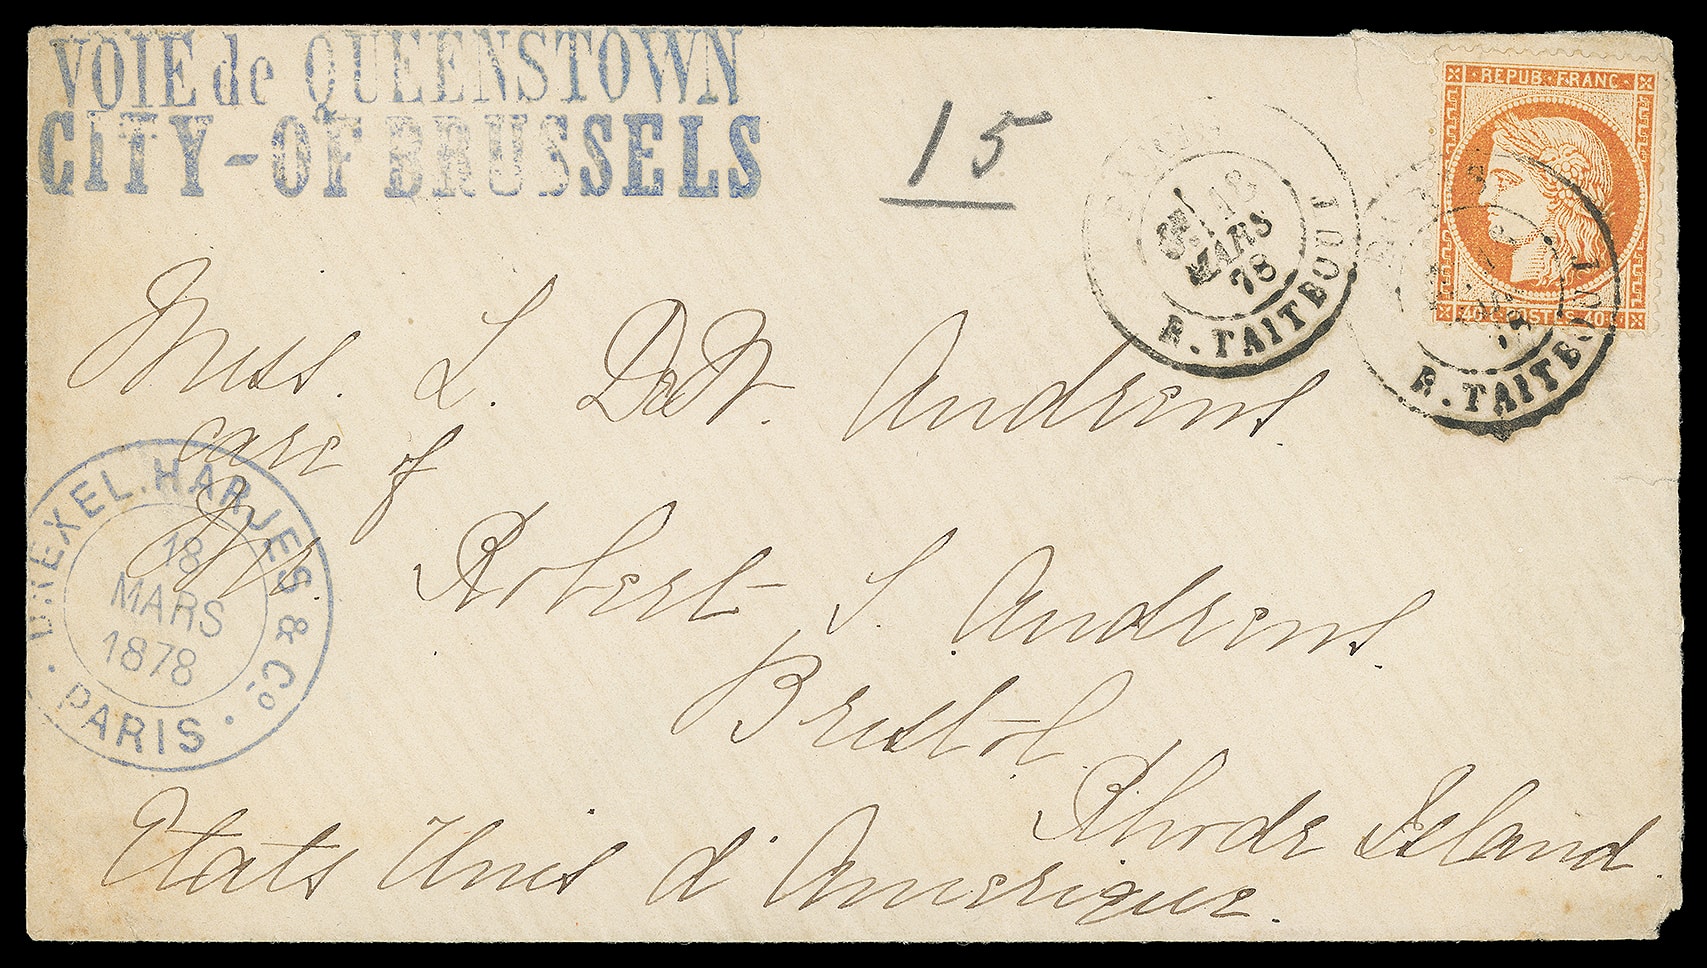 VOIE de QUEENSTOWN
CITY-OF BRUSSELS
15
REPUB·FRANC·
40 C. POSTES 40 C.
5E/
18
MARS
78
R. TAITBOUT
R. TAITBOUT
Miss. L. DeW. Andrews.
care of
Mrs. Robert S. Andrews.
Bristol.
Rhode Island.
Etats Unis d'Amerique.
DREXEL. HARJES & Co.
18
MARS
1878
· PARIS ·